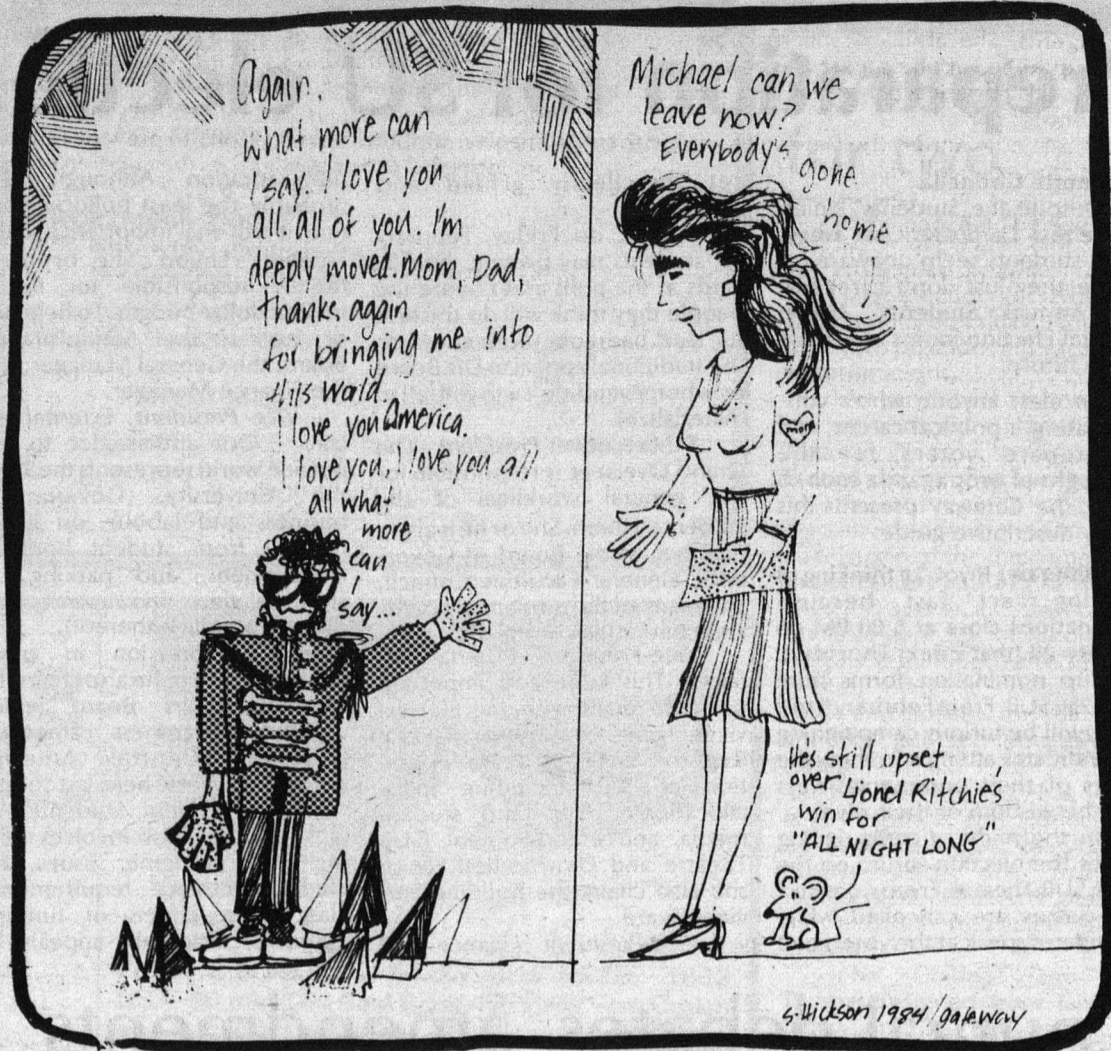 Again.
what more can
I say. I love you
all. all of you. I'm
deeply moved. Mom, Dad,
thanks again
for bringing me into
this world.
I love you America,
I love you. I love you all
all what
more
can
I
say...
Michael can we
leave now?
Everybody's gone
home
mom
He's still upset
over Lionel Ritchie's
win for
"ALL NIGHT LONG"
S. Hickson 1984/gateway